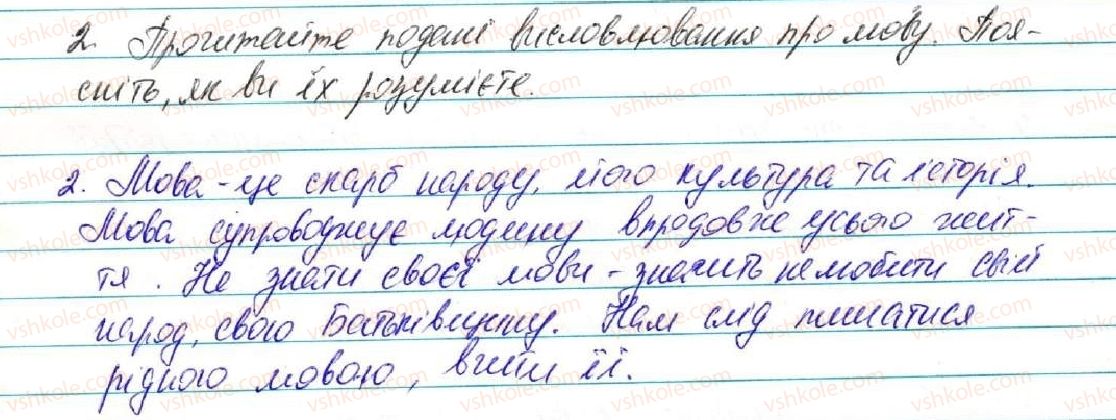 2. Прочитайте подані висловлювання про мову. Поя-
сніть, як ви їх розумієте.
2. Мова - це скарб народу, його культура та історія.
Мова супроводжує людину впродовж усього жит-
тя. Не знати своєї мови - значить не любити свій
народ, свою Батьківщину. Нам слід пишатися
рідною мовою, вчити її.